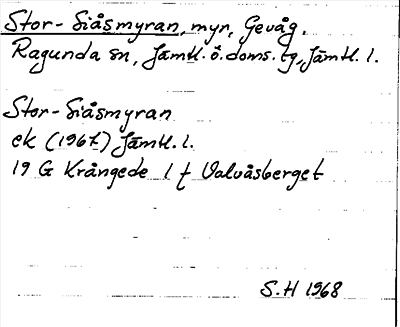 Stor-Siåsmyran, myr, Gevåg,
Ragunda sn, Jämtl. ö. doms. tg, Jämtl. l.
Stor-Siåsmyran
ek (1967) Jämtl. l.
19 G Krångede 1 f Valvåsberget
S.H 1968